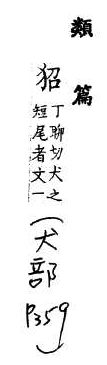 類篇
㹦
丁聊切犬之
短尾者文一
(犬部
P359)